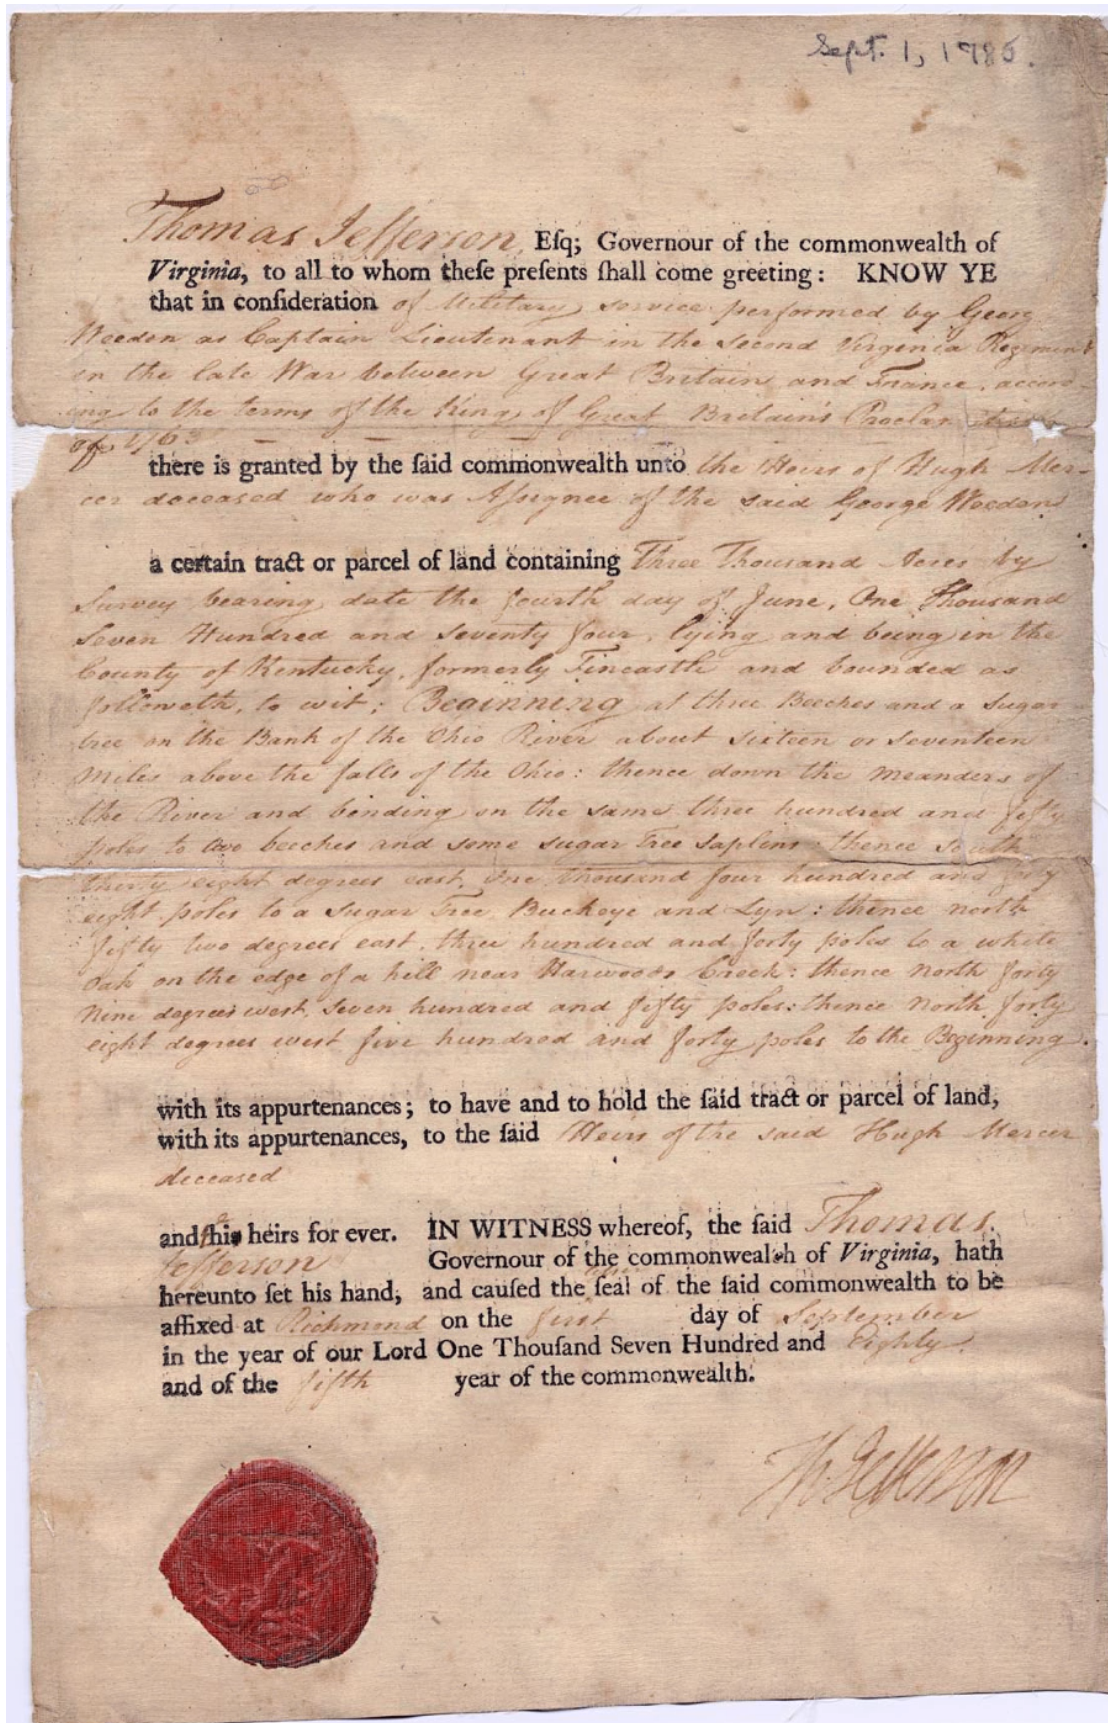 Sept. 1, 1780.
Thomas Jefferson, Eſq; Governour of the commonwealth of
Virginia, to all to whom theſe preſents ſhall come greeting: KNOW YE
that in conſideration of Military service performed by Georg
Weedon as Captain Lieutenant in the Second Virginia Regiment
in the late War between Great Britain and France, accord-
ing to the terms of the King of Great Britain's Proclamation
of 1763
there is granted by the ſaid commonwealth unto the Heirs of Hugh Mer-
cer deceased who was Assignee of the said George Weedon
a certain tract or parcel of land containing Three Thousand Acres by
Survey bearing date the fourth day of June, One Thousand
Seven Hundred and Seventy four, lying and being in the
County of Kentucky, formerly Fincastle and bounded as
followeth, to wit; Beginning at three Beeches and a Sugar
tree on the Bank of the Ohio River about sixteen or seventeen
Miles above the falls of the Ohio: thence down the meanders of
the River and binding on the same three hundred and fifty
poles to two beeches and some sugar Tree Saplins: thence South
thirty eight degrees east, One thousand four hundred and forty
eight poles to a Sugar Tree, Buckeye and Lyn: thence north
fifty two degrees east, three hundred and forty poles to a white
Oak on the edge of a hill near Harwoods Creek: thence North forty
Nine degrees west, Seven hundred and fifty poles: thence North forty
eight degrees west five hundred and forty poles to the Beginning.
with its appurtenances; to have and to hold the ſaid tract or parcel of land,
with its appurtenances, to the ſaid Heirs of the said Hugh Mercer
deceased
and heirs for ever. IN WITNESS whereof, the ſaid Thomas
Jefferson Governour of the commonwealth of Virginia, hath
hereunto ſet his hand, and cauſed the ſeal of the ſaid commonwealth to be
affixed at Richmond on the first day of September
in the year of our Lord One Thouſand Seven Hundred and Eighty.
and of the fifth year of the commonwealth.
Th. Jefferson